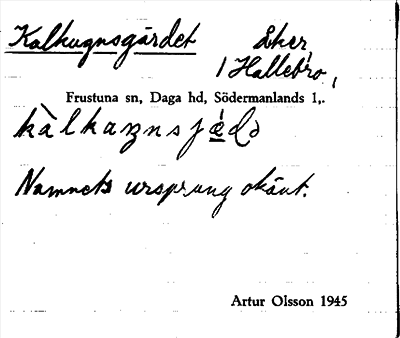 Kalkugnsgärdet Åker,
1 Hallebro,
Frustuna sn, Daga hd, Södermanlands l,.
Namnets ursprung okänt.
Artur Olsson 1945